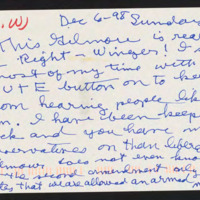 .W)
Dec 6-98 Sunday
This Gilmore is rea
Right-Winger! I s
most of my time with
UTE button on to ke
om hearing people lik
m. I have been keep
ck and you have m
servatives on than libera
ilmour does not even know
the second amendment only
tes that we are allowed an armed m